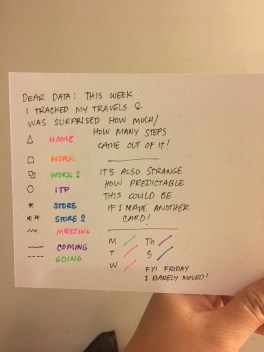 DEAR DATA: THIS WEEK
I TRACKED MY TRAVELS &
WAS SURPRISED HOW MUCH/
HOW MANY STEPS
CAME OUT OF IT!
HOME
WORK
WORK 2
ITP
STORE
STORE 2
MEETING
COMING
GOING
IT'S ALSO STRANGE
HOW PREDICTABLE
THIS COULD BE
IF I MADE ANOTHER
CARD!
M Th
T S
W FYI FRIDAY
I BARELY MOVED!